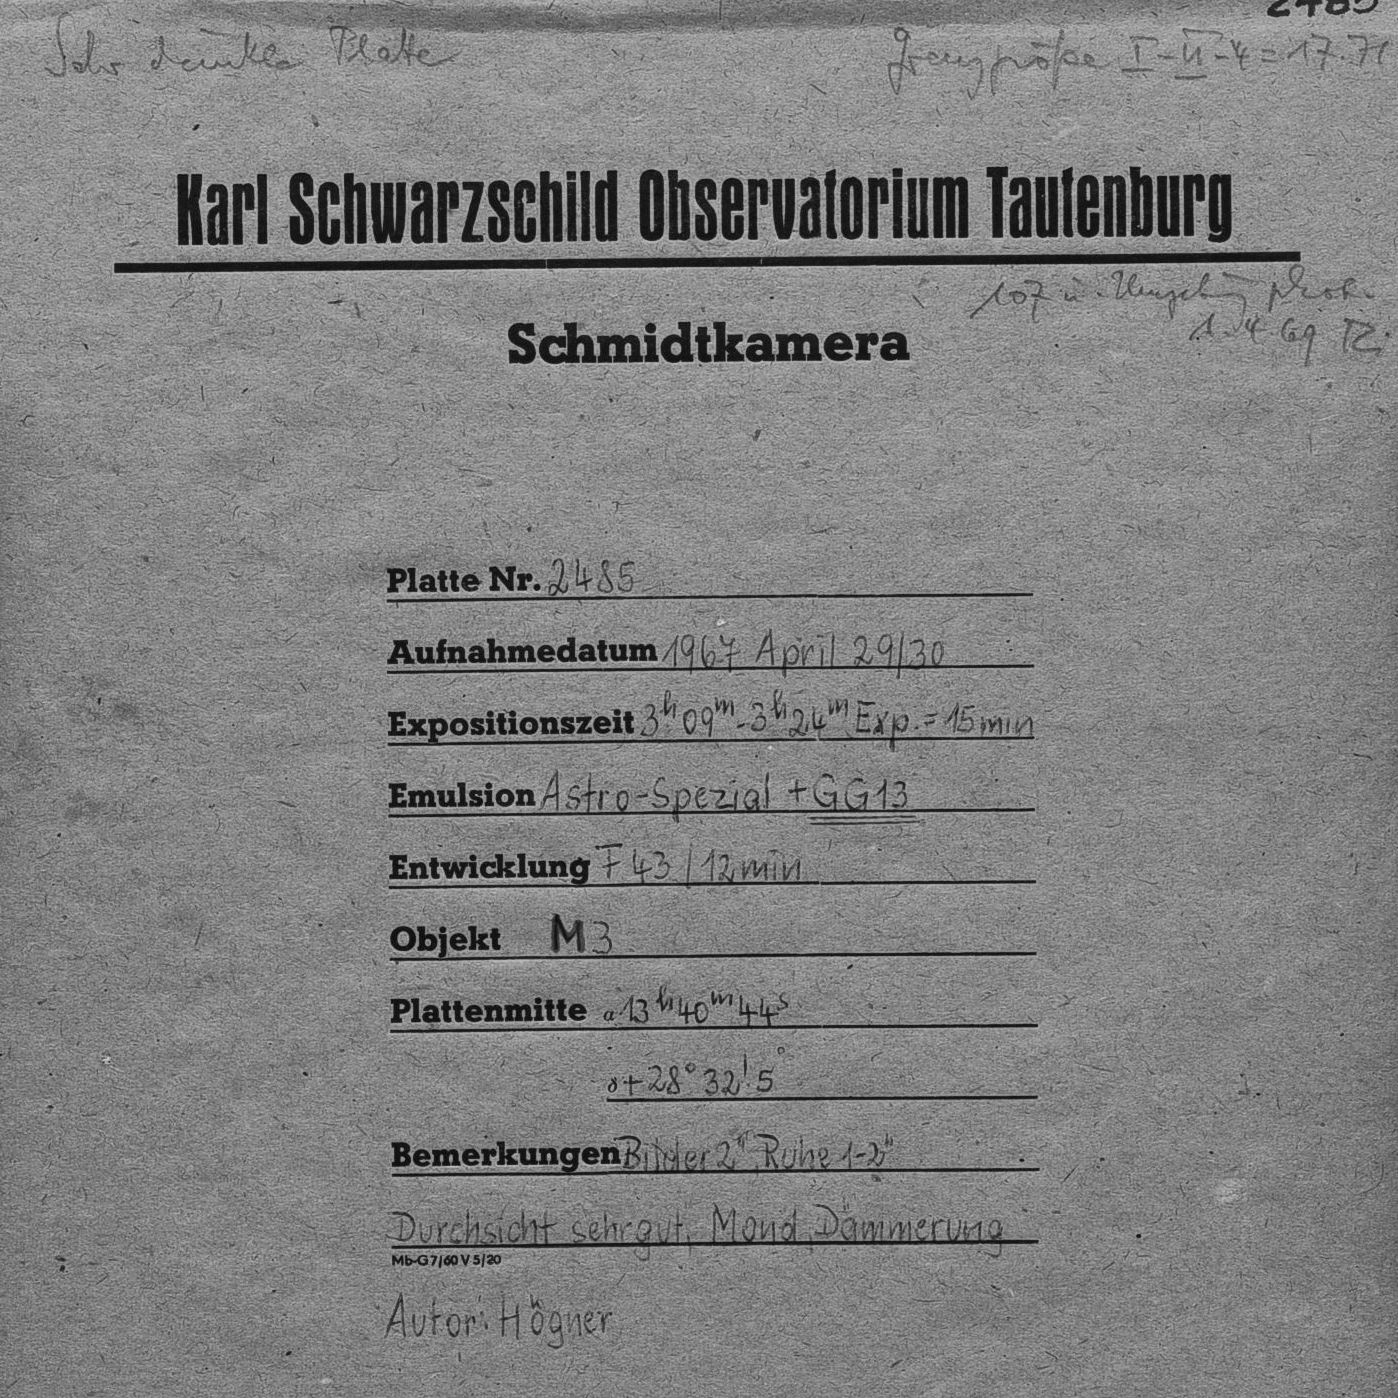 2485
Sehr dunkle Platte
Grenzgröße I-II-4 = 17.71
Karl Schwarzschild Observatorium Tautenburg
107 u. Umgebung phot.
Schmidtkamera
1 4 69
Platte Nr. 2485
Aufnahmedatum 1967 April 29/30
Expositionszeit 3h 09m - 3h 24m Exp. = 15 min
Emulsion Astro-Spezial + GG13
Entwicklung F43 / 12 min
Objekt M3
Plattenmitte α 13h 40m 44s
δ + 28° 32' 5
Bemerkungen Bilder 2" Ruhe 1-2"
Durchsicht sehr gut, Mond, Dämmerung
Mb-G 7/60 V 5/20
Autor: Högner